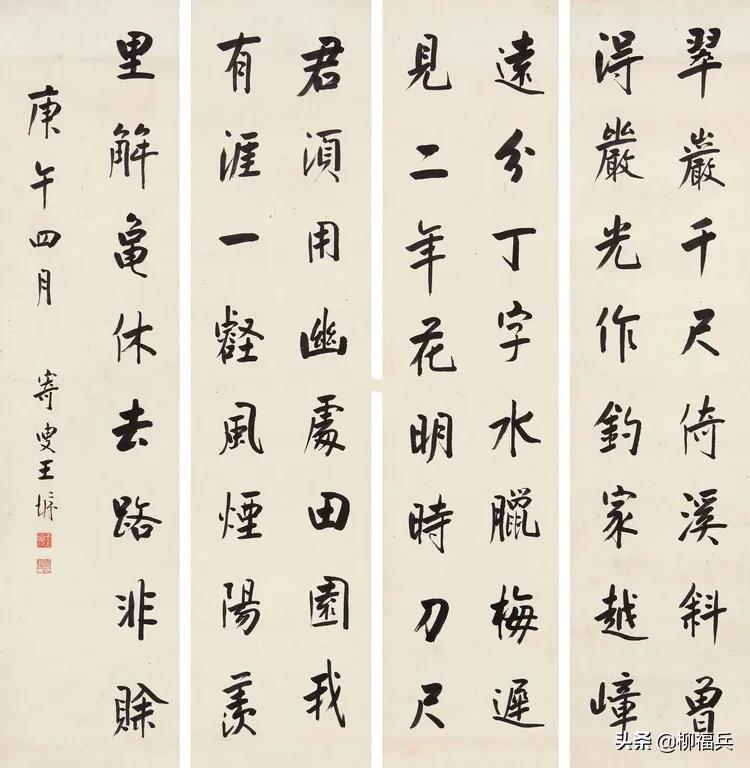 翠巖千尺倚溪斜曾
得嚴光作釣家越嶂
遠分丁字水臘梅遲
見二年花明時刀尺
君須用幽處田園我
有涯一壑風煙陽羨
里解龜休去路非賒
庚午四月 寄叟王垿
头条 @柳福兵